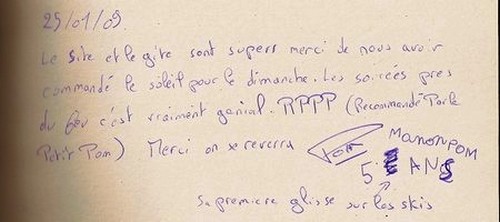 25/01/09.
Le Site et le gîte sont supers merci de nous avoir
commandé le soleil pour le dimanche. Les soirées pres
du feu c'est vraiment genial. RPPP (Recommandé Par le
Petit Pom) Merci on se reverra Tom MANONPOM
5 ANS
Sa premiere glisse sur les skis